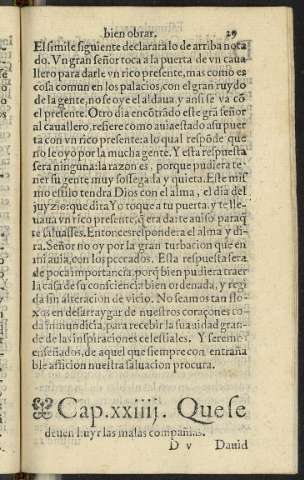 bien obrar. 29
El simile siguiente declarara lo de arriba nota
do. Vn gran señor toca a la puerta de vn caua
llero para darle vn rico presente, mas como es
cosa comun en los palacios, con el gran ruydo
de la gente, no se oye el aldaua, y ansi se va cõ
el presente. Otro dia encõtrado este grã señor
al cauallero, refiere como auia estado a su puer
ta con vn rico presente: a lo qual respõde que
no le oyo por la mucha gente. Y esta respuesta
sera ninguna: la razon es, porque pudiera te-
ner su gente muy sossegada y quieta. Este mis
mo estilo tendra Dios con el alma, el dia del
juyzio: que dira Yo toque a tu puerta, y te lle-
uaua vn rico presente, q̃ era darte auiso paraq̃
te saluasses. Entonces respondera el alma y di-
ra. Señor no oy por la gran turbacion que en
mi auia, con los peccados. Esta respuesta sera
de poca importancia, porq̃ bien pudiera traer
la casa de su consciencia bien ordenada, y regi
da sin alteracion de vicio. No seamos tan flo-
xos en desarraygar de nuestros coraçones to-
da inmundicia, para recebir la suauidad gran-
de de las inspiraciones celestiales. Y seremos
enseñados, de aquel que siempre con entraña
ble afficion nuestra saluacion procura.
Cap. xxiiij. Que se
deuen huyr las malas compañias.
D v Dauid